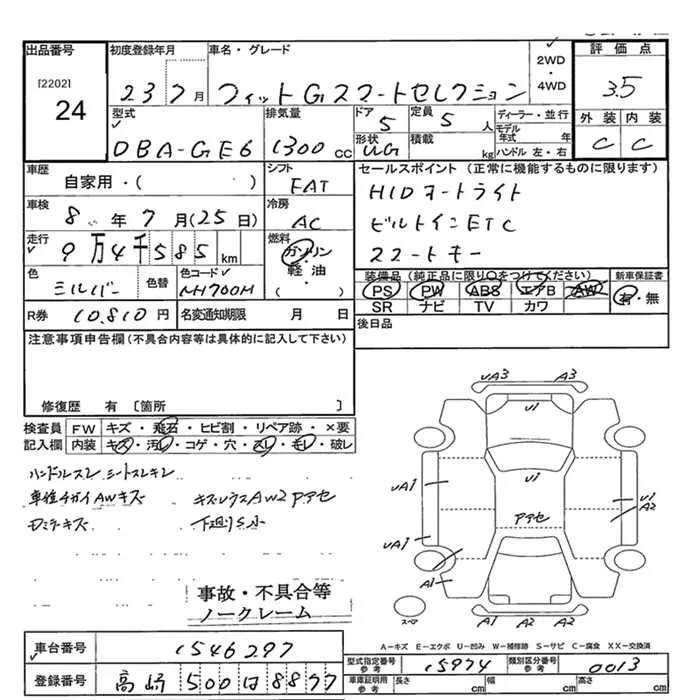 出品番号
[2202]
24
初度登録年月
23 7月
車名・グレード
フィット Gスマートセレクション
2WD
・
4WD
評価点
3.5
外装 内装
C C
型式
DBA-GE6
排気量
1300cc
ドア
5
形状
UG
定員
5人
積載
kg
ディーラー・並行
モデル年式 年
ハンドル 左・右
車歴
自家用・( )
シフト
FAT
車検
8年 7月(25日)
冷房
AC
走行
9万4千585km
燃料
ガソリン
軽油
・
( )
色
シルバー
色替
色コード
NH700H
R券 10,810円
名変通知期限 月 日
セールスポイント(正常に機能するものに限ります)
HIDオートライト
ビルトインETC
スマートキー
装備品(純正品に限り○をつけてください)
PS PW ABS エアB AW
SR ナビ TV カワ
新車保証書
有・無
後日品
注意事項申告欄(不具合内容等は具体的に記入して下さい)
修復歴 有〔箇所 〕
検査員記入欄
FW キズ・飛石・ヒビ割・リペア跡・×要
内装 キズ・汚レ・コゲ・穴・スレ・モレ・破レ
ハンドルスレ シートスレキレ
車種チガイAWキズ
キズレウスAW2Pアセ
モニターキズ
下廻りS小
事故・不具合等
ノークレーム
UA3 A3
U1
U1
Pアセ
UA1
UA1
A1
U1
A2
A1 A2 A2
スペア
A-キズ E-エクボ U-凹み W-補修跡 S-サビ C-腐食 XX-交換済
車台番号 1546297
登録番号 高崎 500 は 8877
型式指定番号 参考 15974
類別区分番号 参考 0013
車庫証明用 参考 長さ cm 幅 cm 高さ cm